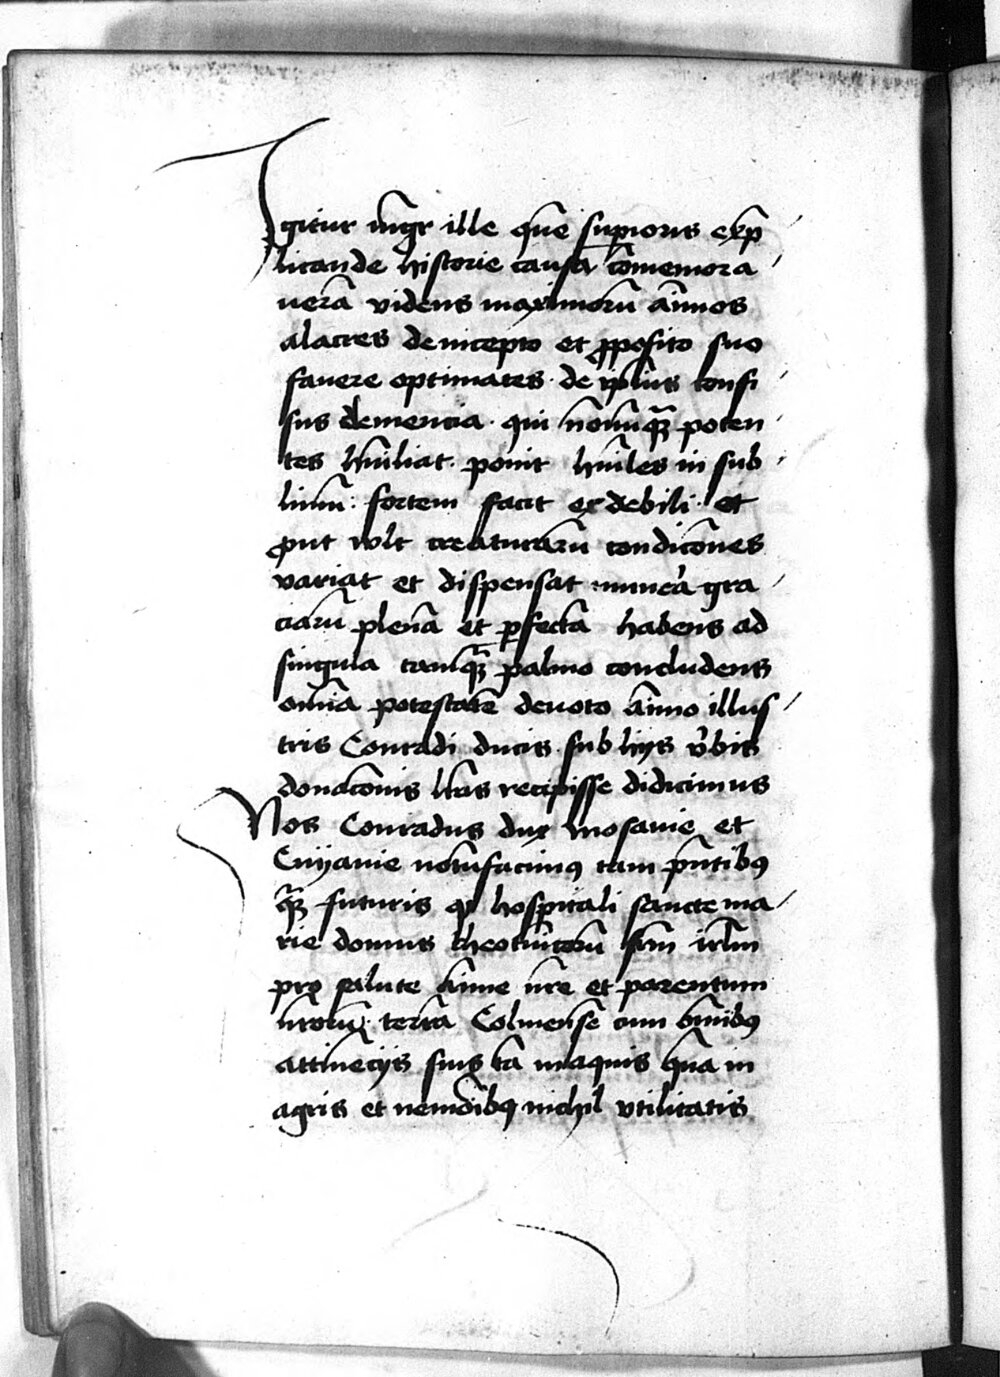 Igitur mgr̄ ille quē suꝑioris exp
licande historie causa cōmemora
uerā videns maximorū aīmos
alacres de incepto et ꝓposito suo
fauere optimates. de ip̄ius confi
sus clemencia. qui nōnūq̄ꝫ poten
tes hūiliat. ponit hūiles in sub
limī: fortem facit ex debili. et
ꝓut vult creaturarū condicōnes
variat et dispensat gra
ciarū plenā et ꝑfectā habens ad
singula tamq̄ꝫ palmo concludens
om̄ia potestatē deuoto aīmo illus
tris Conradi ducis sub hijs v̄bis
donacōnis lr̄as recepisse didicimus
Nos Conradus dux mosauie et
Cuyauie notūfacimꝰ tam pn̄tibꝰ
q̄ꝫ futuris qͥ hospitali sancte ma
rie domus theotūicorū Irlm̄
pro salute aīme nr̄e et parentum
nr̄orū. terrā Colmensē cum om̄ibꝰ
attinēcijs suis tā in aquis quā in
agris et nemoībꝰ nichil vtilitatis